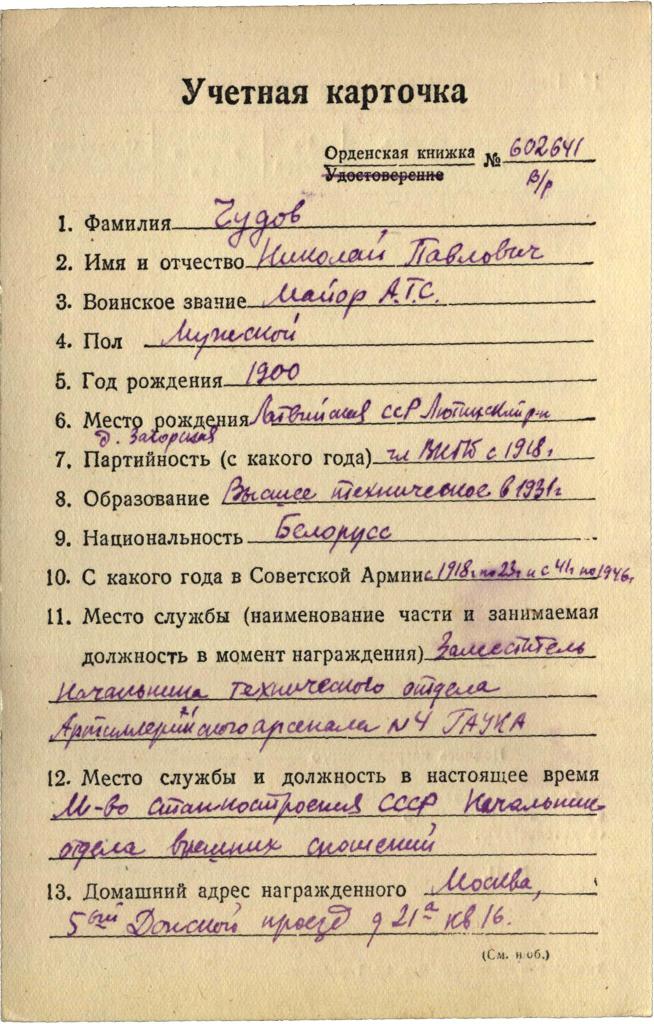 Учетная карточка
Орденская книжка № 602641
Удостоверение в/р
1. Фамилия Чудов
2. Имя и отчество Николай Павлович
3. Воинское звание Майор А.Т.С.
4. Пол Мужской
5. Год рождения 1900
6. Место рождения Латвийская ССР Лютинский р-н
д. Загорская
7. Партийность (с какого года) чл ВКПб с 1918г
8. Образование Высшее техническое в 1931г
9. Национальность Белорусс
10. С какого года в Советской Армии с 1918г по 23г и с 41г по 1946г
11. Место службы (наименование части и занимаемая
должность в момент награждения) Заместитель
Начальника технического отдела
Артиллерийского арсенала №4 ГАУКА
12. Место службы и должность в настоящее время
М-во Станкостроения СССР Начальник
отдела внешних сношений
13. Домашний адрес награжденного Москва,
5ый Донской проезд д 21а кв 16.
(См. н/об.)